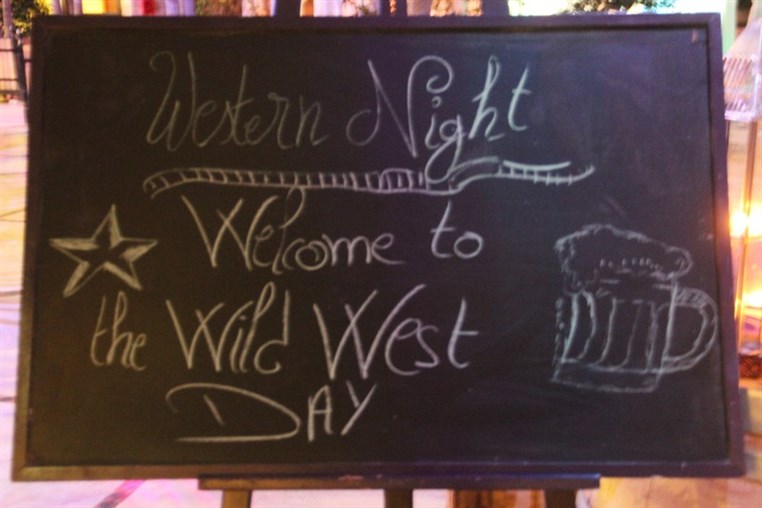 Western Night
Welcome to
the Wild West
DAY